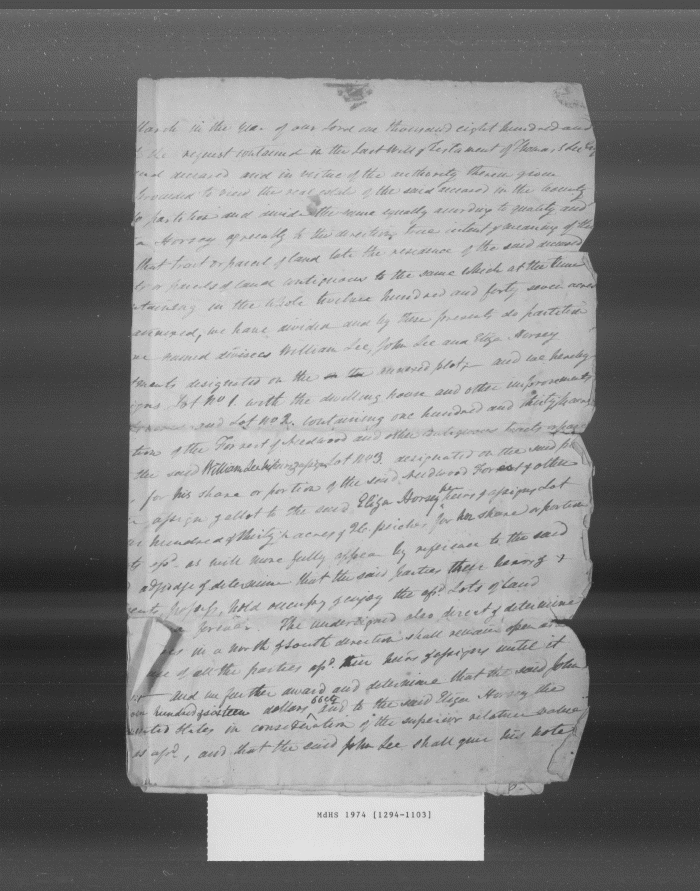 March in the year of our Lord one thousand eight hundred and
the request contained in the last Will & Testament of Thomas S Lee Esq
deceased and in virtue of the authority therein given
proceeded to view the real estate of the said deceased in the county
to partition and divide the same equally according to quality and
Horsey agreeably to the directions true intent & meaning of the
that tract or parcel of land late the residence of the said deceased
or parcels of land contiguous to the same which at the time
containing in the whole twelve hundred and forty seven acres
we have divided and by these presents do partition
named devisees William Lee, John Lee and Eliza Horsey
designated on the annexed plot and we hereby
Lot No 1. with the dwelling house and other improvements
and Lot No 2. containing one hundred and thirty seven
tion of the Forrest of Needwood and other contiguous tracts
the said William Lee his heirs & assigns Lot No 3 designated on the said plot
for his share or portion of the said Needwood Forrest & other
assign & allot to the said Eliza Horsey her heirs & assigns Lot
hundred & thirty acres & 26 perches for her share or portion
afsd. as will more fully appear by reference to the said
adjudge & determine that the said parties their heirs &
possess, hold occupy & enjoy the afsd Lots of Land
The undersigned also direct & determine
in a north & south direction shall remain open
use of all the parties afsd. their heirs & assigns until it
and we further award and determine that the said John
hundred & sixteen dollars 66 cts and to the said Eliza Horsey the
United States in consideration of the superior relative value
as afsd., and that the said John Lee shall give his note
MdHS 1974 [1294-1103]